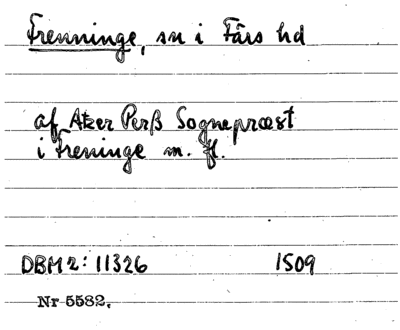 Frenninge, sn i Färs hd
af Atzer Perß Sognepræst
i Freninge m. fl.
DBM 2: 11326 1509
Nr 5582.